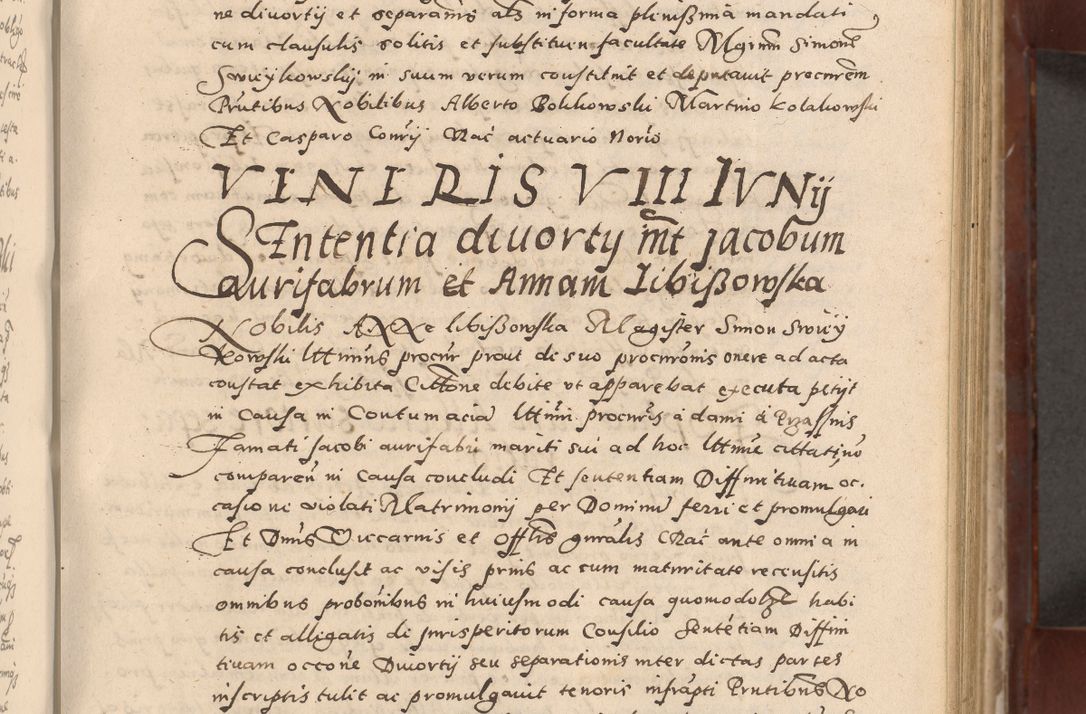 ne divortij et separanis als in forma plenissima mandati
cum clausulis solitis et substituen facultate Mgrum Simone
Swieykowskij in suum verum constituit et deputavit procurem
Prntibus Nobilibus Alberto Bolikowski Martino Kolakowski
Et Casparo Conrij Crac actuario Norio
VENERIS VIII IVNij
SEntentia divortij int Jacobum
aurifabrum et Annam Libißowska
Nobilis Anne libißowska Magister Simon Swiey
kowski lttimus procur prout de suo procuronis onere ad acta
constat exhibita Cittone debite ut apparebat executa petijt
in Causa in Contumacia lttimi procuris a dami
Famati Jacobi aurifabri mariti sui ad hoc lttime cittati no
comparen in Causa concludi Et sententiam Diffinitivam oc.
casione violati Matrimonij per Dominum ferri et promulgari
Et Dnus Viccarius et Offlis gnralis Crac ante omnia in
causa conclusit ac visis prius ac cum maturitate recensitis
omnibus probonibus in huiusmodi causa quomodolzt habi
tis et alligatis de jurisperitorum Consilio Sententiam Diffini
tivam occone Divortij seu separationis inter dictas partes
inscriptis tulit ac promulgavit tenoris infrapti Prntibus No